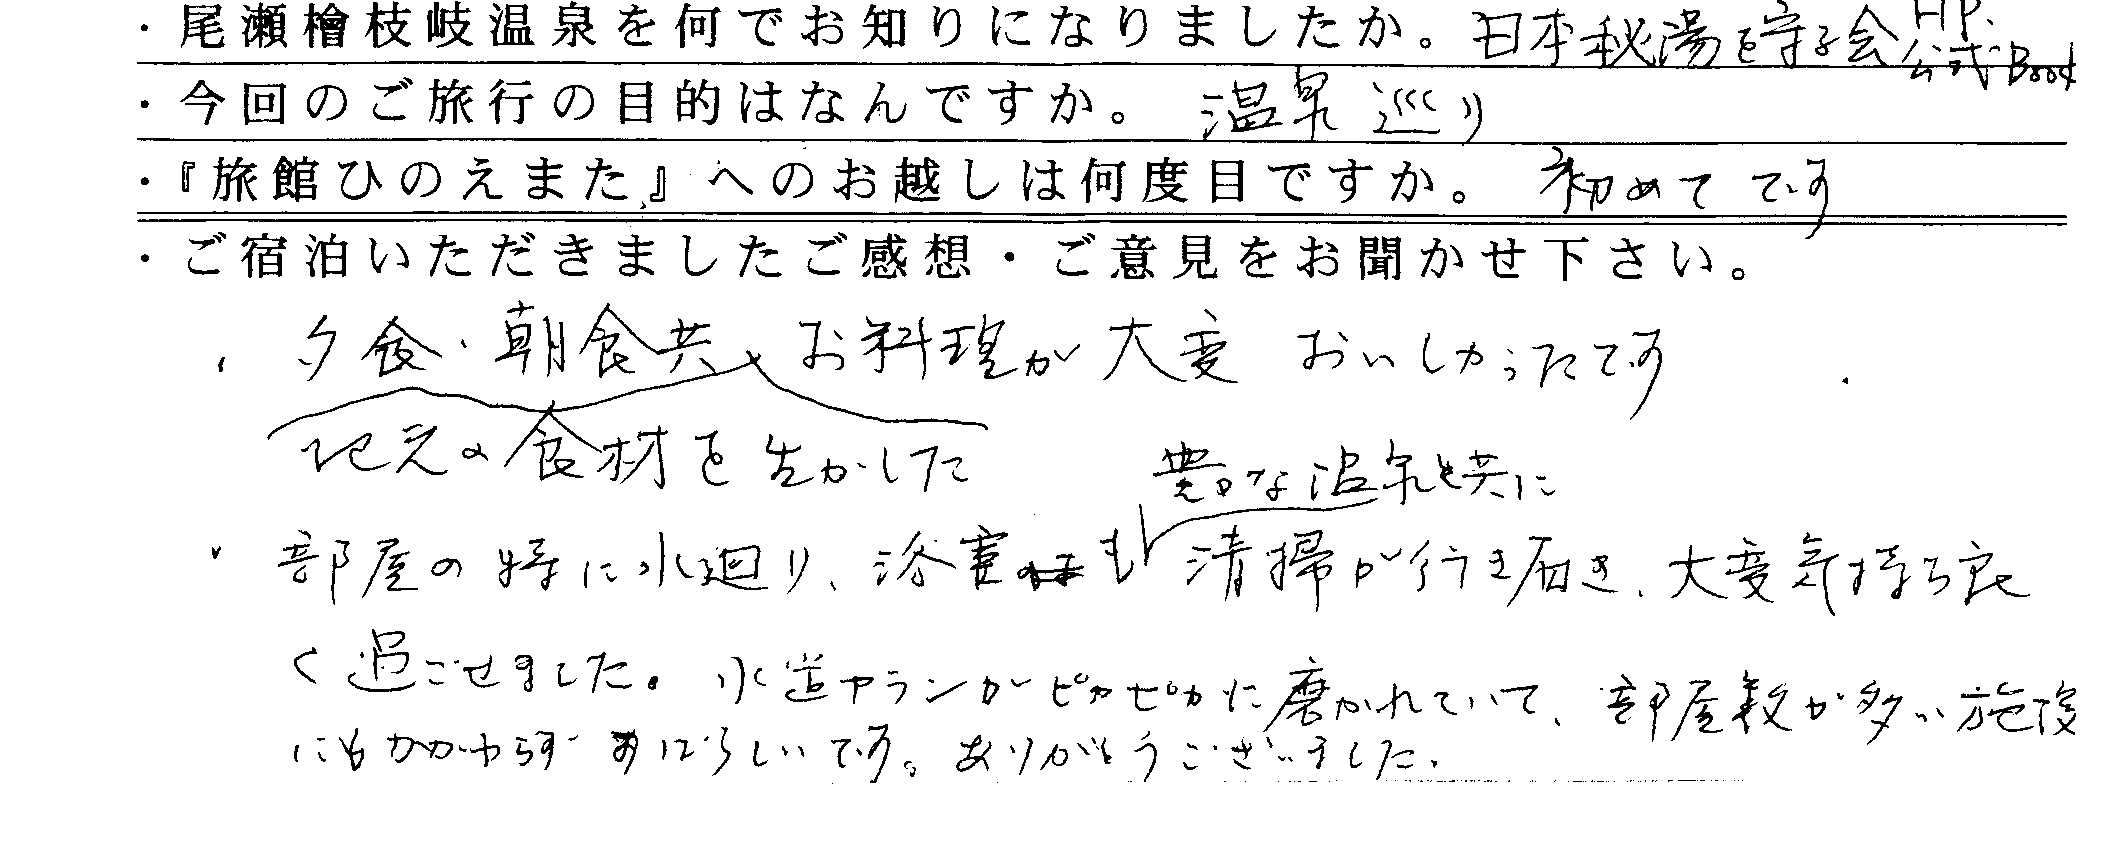 ・尾瀬檜枝岐温泉を何でお知りになりましたか。日本秘湯を守る会 HP. 公式Book
・今回のご旅行の目的はなんですか。 温泉巡り
・『旅館ひのえまた』へのお越しは何度目ですか。 初めてです
・ご宿泊いただきましたご感想・ご意見をお聞かせ下さい。
・夕食・朝食共、お料理が大変おいしかったです
地元の食材を生かした
豊かな温泉と共に
・部屋の特に水廻り、浴室も清掃が行き届き、大変気持ち良
く過ごせました。水道カランがピカピカに磨かれていて、部屋数が多い施設
にもかかわらずすばらしいです。ありがとうございました。